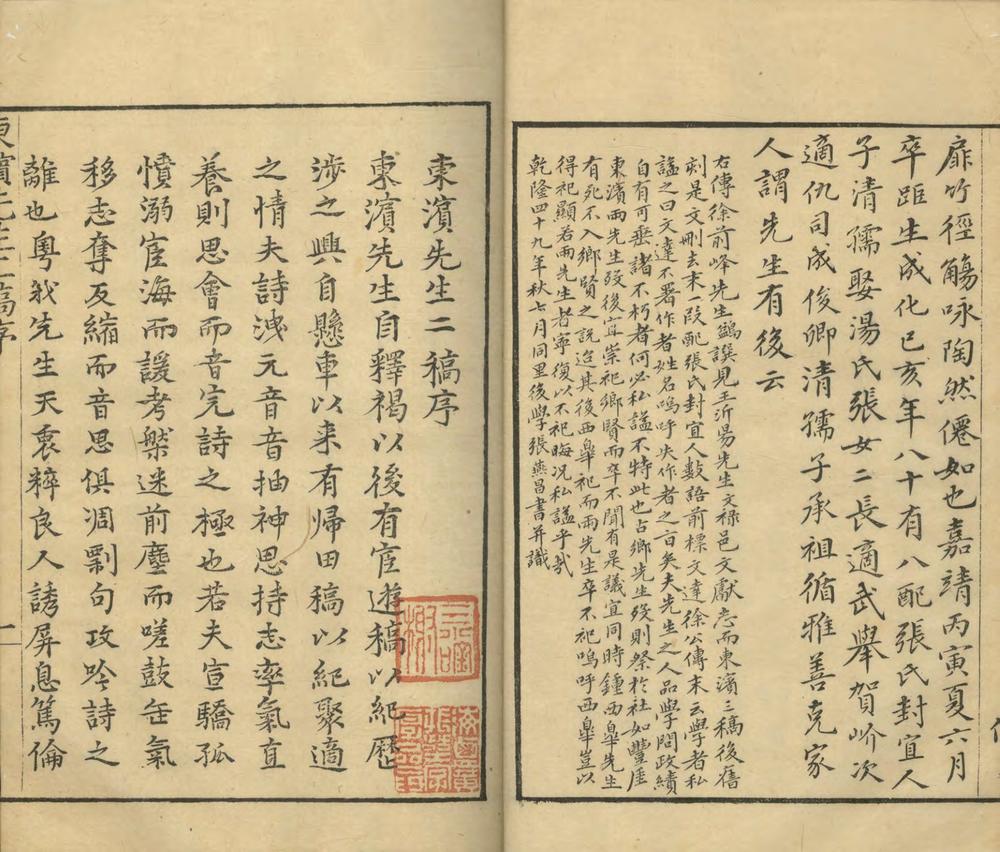 扉竹徑觴咏陶然僊如也嘉靖丙寅夏六月
卒距生成化己亥年八十有八配張氏封宜人
子清孺娶湯氏張女二長適武舉賀岕次
適仇司成俊卿清孺子承祖循雅善克家
人謂先生有後云
右傳徐前峰先生鷁譔見王沂昜先生文祿邑文獻志而東濱三稿後舊
刻是文刪去末一段配張氏封宜人數語前標文達徐公傳末云學者私
諡之曰文達不署作者姓名嗚呼失作者之旨矣夫先生之人品學問政績
自有可垂諸不朽者何必私諡不特此也古鄉先生歿則祭於社如豐厓
東濱兩先生歿後宜崇祀鄉賢而卒不聞有是議宜同時鍾西皐先生
有死不入鄉賢之說迨其後西皐祀而兩先生卒不祀嗚呼西皐豈以
得祀顯若兩先生者寧復以不祀晦况私諡乎哉
乾隆四十九年秋七月同里後學張燕昌書并識
東濱先生二稿序
東濱先生自釋褐以後有宦遊稿以紀歷
涉之興自懸車以来有歸田稿以紀聚適
之情夫詩洩元音音抽神思持志率氣直
養則思會而音完詩之極也若夫宣驕孤
憤溺宦海而諼考槃迷前塵而嗟鼓缶氣
移志奪反縮而音思俱凋剽句攻吟詩之
離也粵我先生天衷粹良人誘屏息篤倫
東濱先生二稿序
一